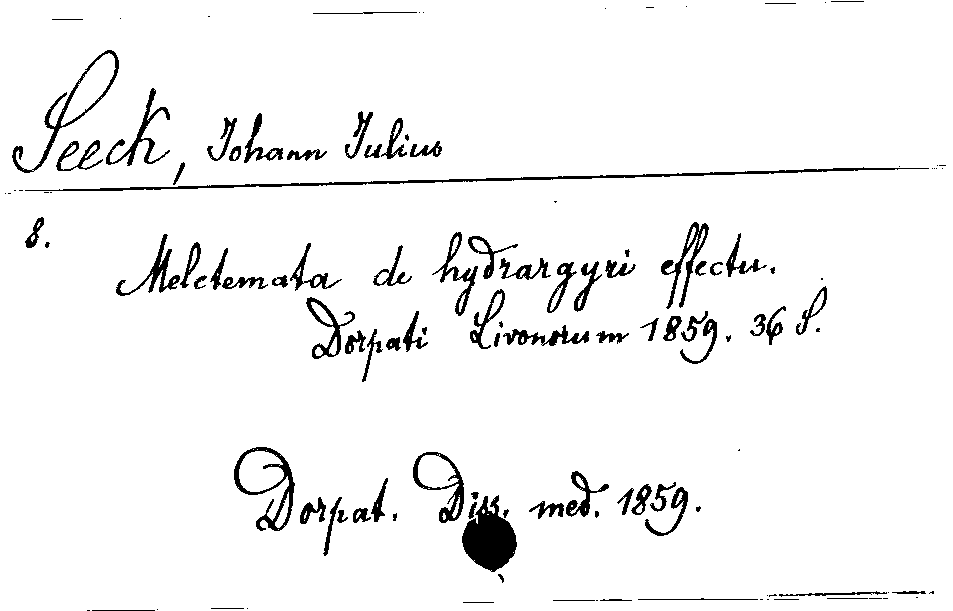 Seeck, Johann Julius
8.
Meletemata de hydrargyri effectu.
Dorpati Livonorum 1859. 36 S.
Dorpat. Diss. med. 1859.